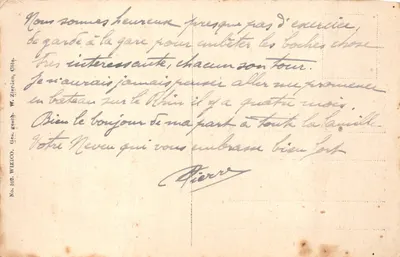 Nous sommes heureux presque pas d'exercice,
de garde à la gare pour embêter les boches chose
très intéressante, chacun son tour.
Je n'aurais jamais penser aller me promener
en bateau sur le Rhin il y a quatre mois.
Bien le bonjour de ma part à toute la famille
Votre Neveu qui vous embrasse bien fort
Pierre